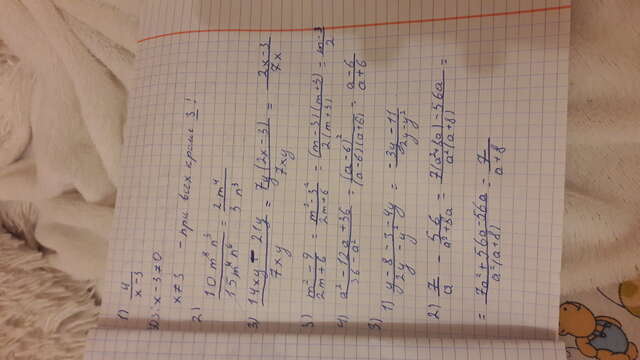 1) 4/(x-3)
ОДЗ: x-3≠0
x≠3 - при всех кроме 3!
2)
10m⁸n³/15m⁴n⁶ = 2m⁴/3n³
3) (14xy - 21y)/7xy = 7y(2x-3)/7xy = (2x-3)/7x
3) (m²-9)/(2m+6) = (m²-3²)/(2m+6) = (m-3)(m+3)/2(m+3) = (m-3)/2
4) (a²-12a+36)/(36-a²) = (a-6)²/(a-6)(a+6) = (a-6)/(a+6)
3)
1) (y-8-3-4y)/(2y-y²) = (-3y-11)/(2y-y²)
2) 7/a - 56/(a²+8a) = (7(a²+8a)-56a)/a²(a+8) =
= (7a²+56a-56a)/a²(a+8) = 7/(a+8)